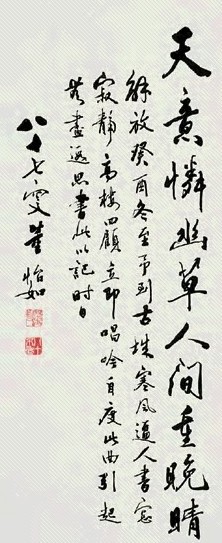 天意憐幽草人间重晚晴
解放癸酉冬至予到古城寒风逼人书窗
寂静高楼四顾立即唱吟自度此曲引起
无尽遐思书此以记时日
八十七叟董